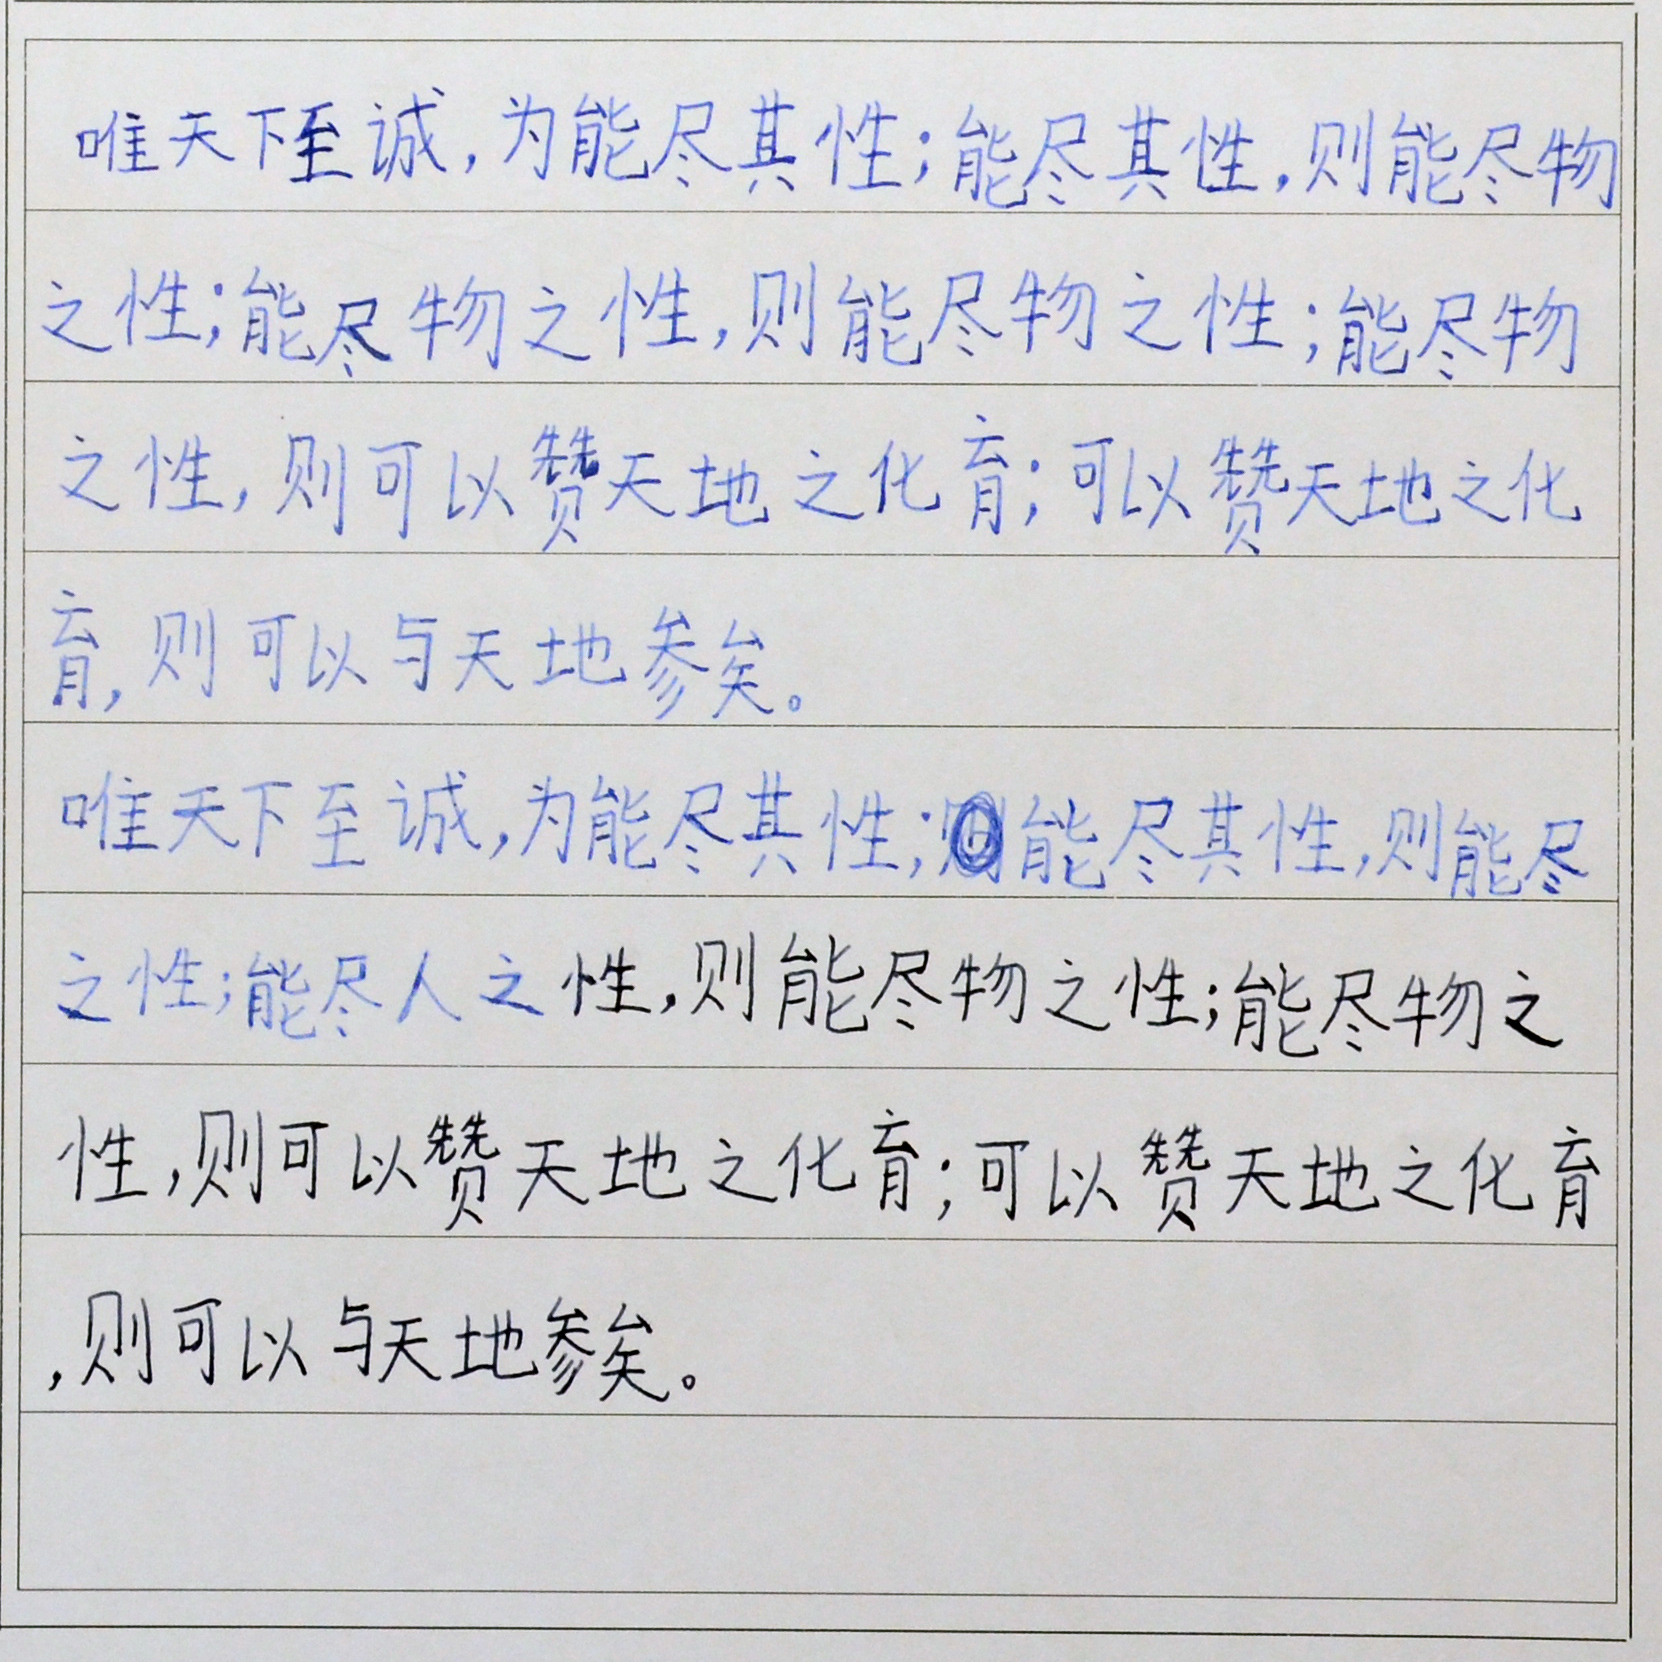 唯天下至诚,为能尽其性;能尽其性,则能尽物
之性;能尽物之性,则能尽物之性;能尽物
之性,则可以赞天地之化育;可以赞天地之化
育,则可以与天地参矣。
唯天下至诚,为能尽其性;能尽其性,则能尽
之性;能尽人之性,则能尽物之性;能尽物之
性,则可以赞天地之化育;可以赞天地之化育
,则可以与天地参矣。